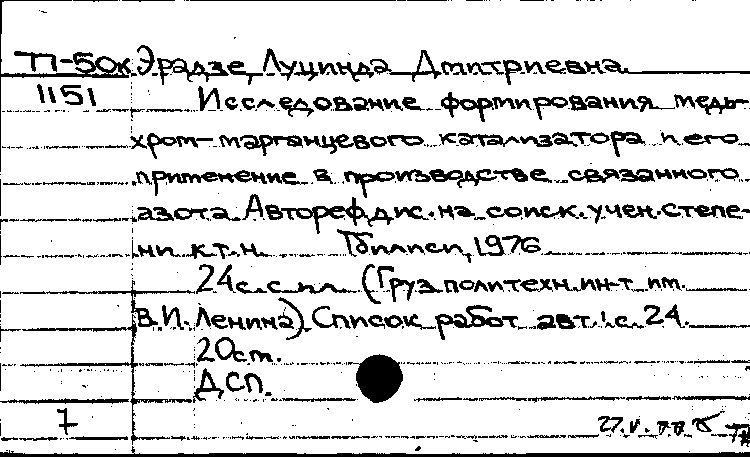 ТП-50к Эрадзе, Луцинда Дмитриевна
1151 Исследование формирования медь-
хром-марганцевого катализатора и его
применение в производстве связанного
азота. Автореф. дис. на соиск. учен. степе-
ни к.т.н. Тбилиси, 1976
24с. с ил. (Груз. политехн. ин-т им.
В.И. Ленина) Список работ авт.: с. 24.
20см.
ДСП.
7